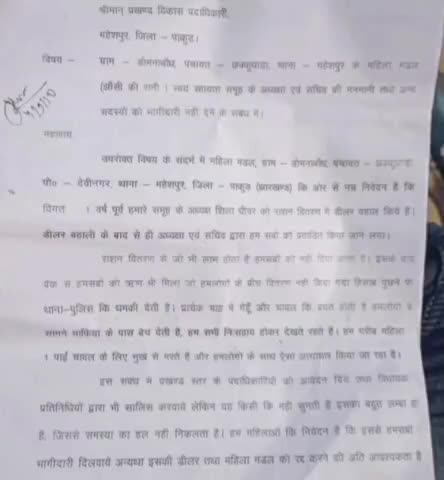 श्रीमान् प्रखण्ड विकास पदाधिकारी,
महेशपुर, जिला – पाकुड़।
विषय – ग्राम – डोमनाबाँध, पंचायत – थाना – महेशपुर के महिला मंडल
(झाँसी की रानी स्वयं सहायता समूह के अध्यक्ष एवं सचिव की मनमानी तथा अन्य
सदस्यों को भागीदारी नहीं देने के संबंध में।
महाशय
उपरोक्त विषय के संदर्भ में महिला मंडल, ग्राम – डोमनाबाँध, पंचायत –
पो० – देवीनगर, थाना – महेशपुर, जिला – पाकुड़ (झारखण्ड) कि ओर से नम्र निवेदन है कि
विगत 1 वर्ष पूर्व हमारे समूह के अध्यक्ष शिला को राशन वितरण में डीलर बहाल किये है।
डीलर बहाली के बाद से ही अध्यक्ष एवं सचिव द्वारा हम सबों को प्रताडित किया जाने लगा।
राशन वितरण से जो भी लाभ होता है हमसबों को नहीं दिया जाता है। इसके बाद
बैंक से हमसबों को ऋण भी मिला जो हमलोगों के बीच वितरण नहीं किया गया हिसाब पुछने पर
थाना–पुलिस कि धमकी देती है। प्रत्येक माह में गेहूँ और चावल कि बचत होती है हमलोगों के
सामने माफिया के पास बेच देती है, हम सभी निःसहाय होकर देखते रहते है। हम गरीब महिला
1 पाई चावल के लिए भुख से मरते है और हमलोगों के साथ ऐसा अत्याचार किया जा रहा है।
इस संबंध में प्रखण्ड स्तर के पदाधिकारियों को आवेदन दिये तथा विधायक
प्रतिनिधियों द्वारा भी सालिस करवाये लेकिन वह किसी कि नहीं सुनती है इसका बहुत लम्बा हा
है, जिससे समस्या का हल नहीं निकलता है। हम महिलाओं कि निवेदन है कि इससे हमसबों
भागीदारी दिलवाये अन्यथा इसकी डीलर तथा महिला मंडल को रद्द करने की अति आवश्यकता है